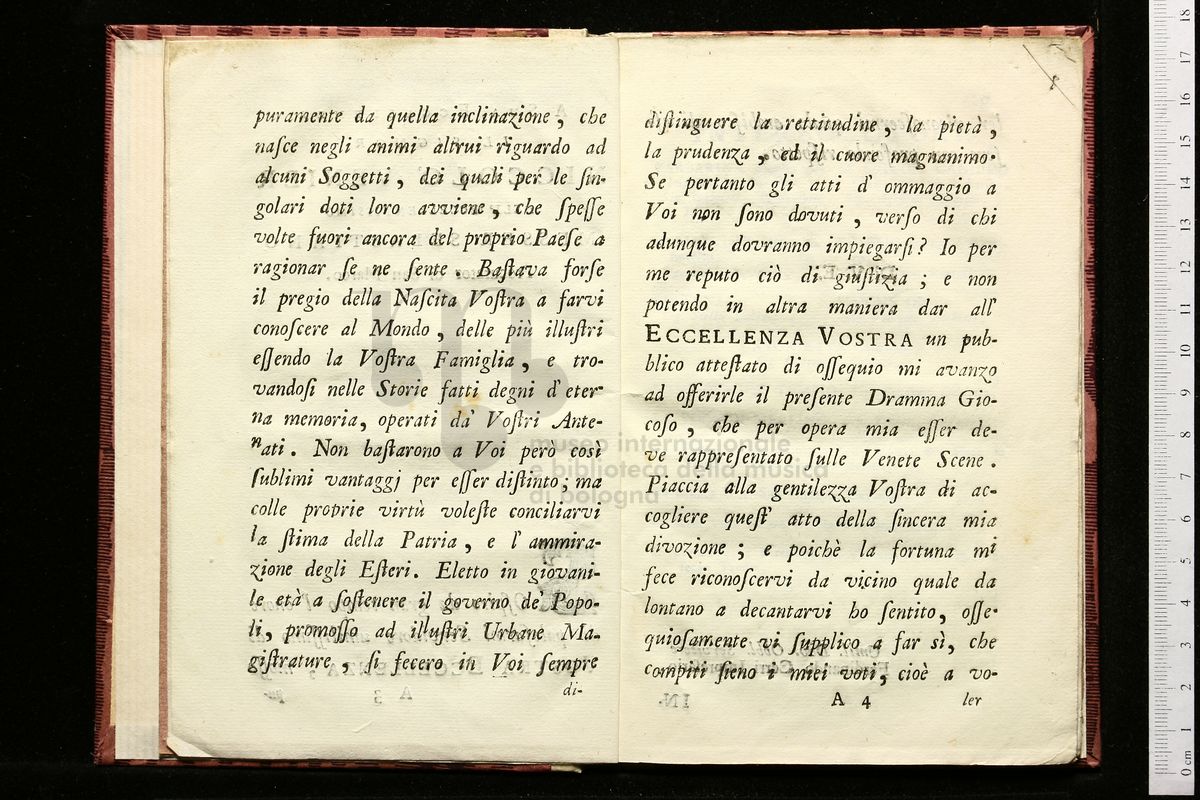 puramente da quella inclinazione, che
naſce negli animi altrui riguardo ad
alcuni Soggetti, dei quali per le ſin-
golari doti loro avviene, che ſpeſſe
volte fuori ancora del proprio Paeſe a
ragionar ſe ne ſente. Baſtava forſe
il pregio della Naſcita Voſtra a farvi
conoſcere al Mondo, delle più illuſtri
eſſendo la Voſtra Famiglia, e tro-
vandoſi nelle Storie fatti degni d'eter-
na memoria, operati da' Voſtri Ante-
nati. Non baſtarono a Voi però così
ſublimi vantaggj per eſſer diſtinto; ma
colle proprie virtù voleſte conciliarvi
la ſtima della Patria, e l'ammira-
zione degli Eſteri. Eletto in giovani-
le età a ſoſtenere il governo de' Popo-
li, promoſſo ad illuſtri Urbane Ma-
giſtrature, ſi fecero in Voi ſempre
di-
diſtinguere la rettitudine, la pietà,
la prudenza, ed il cuore magnanimo.
Se pertanto gli atti d'ommaggio a
Voi non ſono dovuti, verſo di chi
adunque dovranno impiegarſi? Io per
me reputo ciò di giuſtizia; e non
potendo in altra maniera dar all'
ECCELLENZA VOSTRA un pub-
blico atteſtato di oſſequio mi avanzo
ad offerirle il preſente Dramma Gio-
coſo, che per opera mia eſſer de-
ve rappreſentato ſulle Venete Scene.
Piaccia alla gentilezza Voſtra di ac-
cogliere queſt' atto della ſincera mia
divozione; e poichè la fortuna mi
fece riconoſcervi da vicino quale da
lontano a decantarvi ho ſentito, oſſe-
quioſamente vi ſupplico a far sì, che
compiti ſieno i miei voti, cioè a vo-
A 4 ler
museo internazionale
e biblioteca della musica
di bologna
0 cm 1 2 3 4 5 6 7 8 9 10 11 12 13 14 15 16 17 18